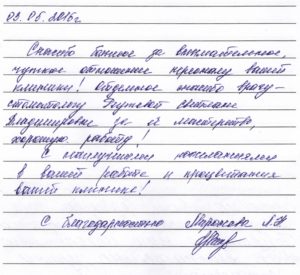 03.06.2016г
Спасибо большое за внимательное,
чуткое отношение персоналу вашей
клиники! Отдельное спасибо врачу-
стоматологу Светлане
Владимировне за её мастерство,
хорошую работу!
С наилучшими пожеланиями
в вашей работе и процветания
вашей клинике!
С благодарностью